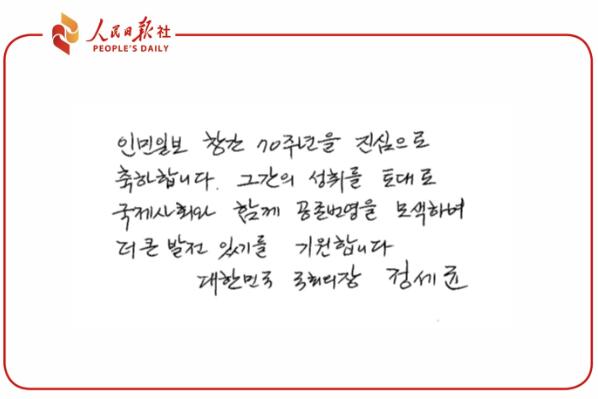 人民日报社
PEOPLE'S DAILY
인민일보 창간 70주년을 진심으로
축하합니다. 그간의 성취를 토대로
국제사회와 함께 공존번영을 모색하며
더 큰 발전 있기를 기원합니다
대한민국 국회의장 정세균